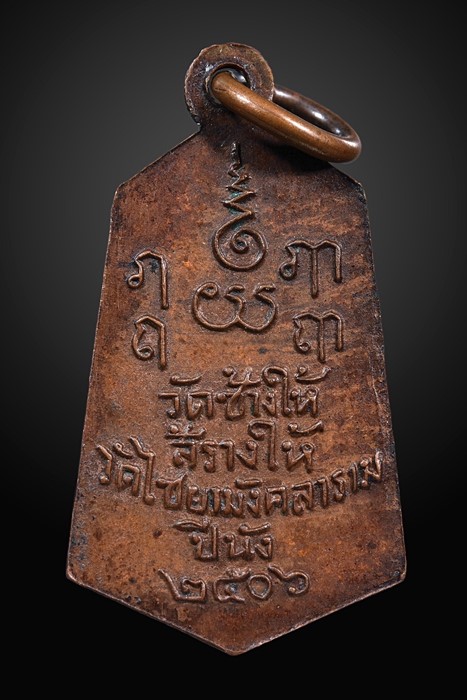 ฦ ฦๅ
ฤ ฤๅ
วัดช้างให้
สร้างให้
วัดไชยามังคลาราม
ปีนัง
๒๕๐๖